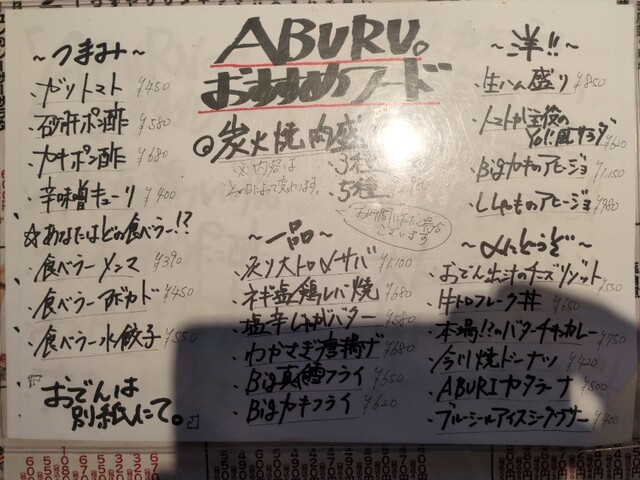 ABURU。
おすすめフード
～つまみ～
・ガリトマト ¥450
・砂肝ポン酢 ¥580
・カキポン酢 ¥680
・辛味噌キューリ ¥400
☆あなたはどの食べラー!?
・食べラーメンマ ¥390
・食べラーアボカド ¥450
・食べラー水餃子 ¥550
『おでんは
別紙にて。』
◎炭火焼肉盛
※内容は
その日によって変わります。
3種
5種
～一品～
・炙り大トロ〆サバ ¥1,100
・ネギ塩鶏レバ焼 ¥680
・塩辛じゃがバター ¥580
・わかさぎ唐揚げ ¥680
・Big真鱈フライ ¥650
・Bigカキフライ ¥620
～洋!!～
・生ハム盛り ¥850
・トマトが主役の
Yo!風サラダ ¥620
・Bigカキのアヒージョ ¥1,150
・ししゃものアヒージョ ¥980
～〆にどうぞ～
・おでん出汁のチーズリゾット ¥550
・牛トロフレーク丼 ¥650
・本場!?のバターチキンカレー ¥750
・今川焼ドーナツ ¥420
・ABURIカタラーナ ¥500
・ブルーシールアイスシークヮーサー ¥400